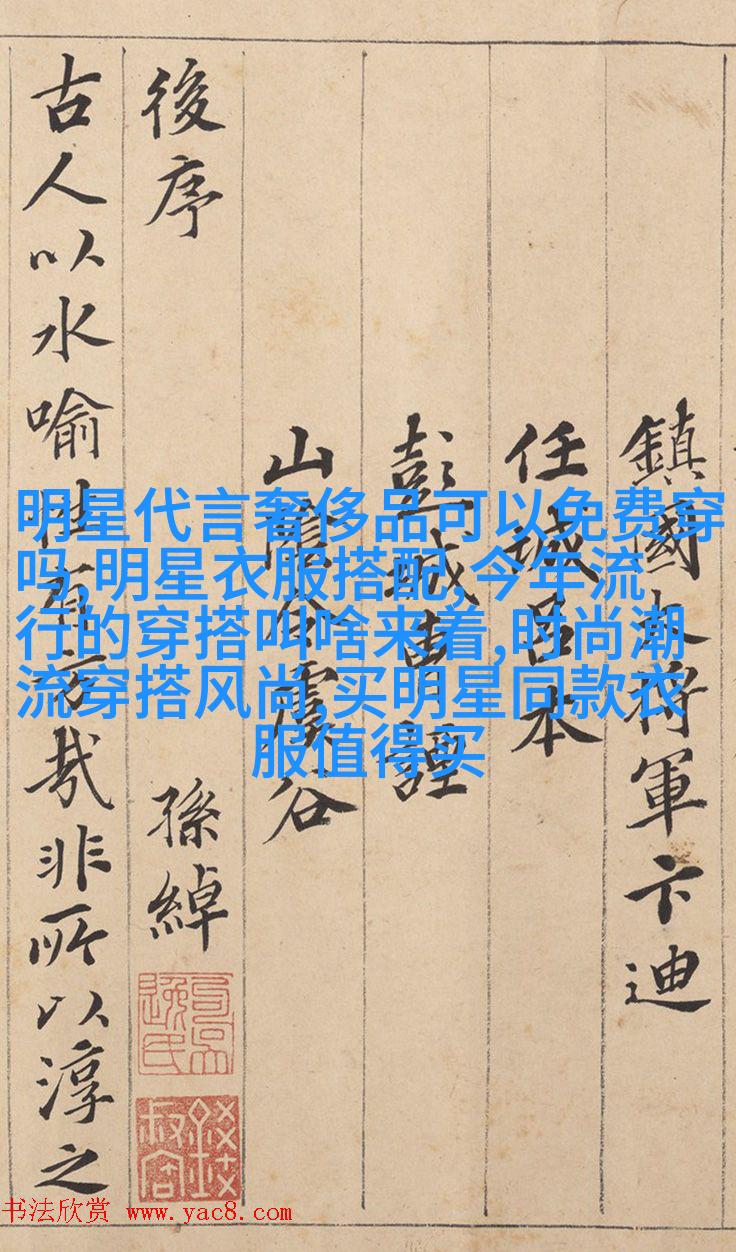 鎮國大将軍卞迪
任城呂本
彭城曹諲
山陰令虞谷
後序
孫綽
古人以水喻性有旨哉非所以淳之
明星代言奢侈品可以免费穿
吗,明星衣服搭配,今年流
行的穿搭叫啥来着,时尚潮
流穿搭风尚,买明星同款衣
服值得买
书法欣赏 www.yac8.com